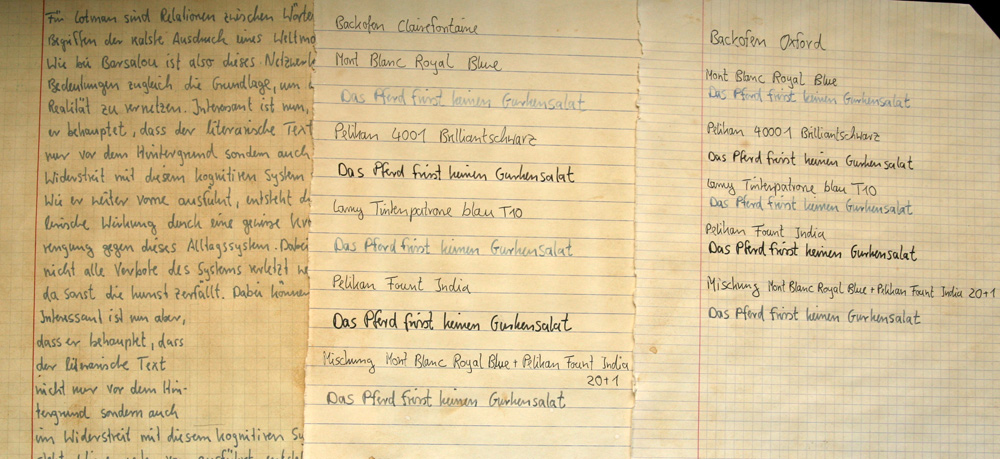 Für Lotman sind Relationen zwischen Wörte
Begriffen der kalste Ausdruck eines Weltmo
Wie bei Barsalou ist also dieses Netzwerk
Bedeutungen zugleich die Grundlage, um
Realität zu vernetzen. Interessant ist nun,
er behauptet, dass der literarische Text
nur vor dem Hintergrund sondern auch
Widerstreit mit diesem kognitiven System
Wie er weiter vorne ausführt, entsteht d
lerische Wirkung durch eine gewisse
rengung gegen dieses Alltagssystem. Dabei
nicht alle Verbote des Systems verletzt we
da sonst die Kunst zerfällt. Dabei können
Interessant ist nun aber,
dass er behauptet, dass
der literarische Text
nicht nur vor dem Hin-
tergrund sondern auch
im Widerstreit mit diesem kognitiven Sy
Backofen Clairefontaine
Mont Blanc Royal Blue
Das Pferd frisst keinen Gurkensalat
Pelikan 4001 Brilliantschwarz
Das Pferd frisst keinen Gurkensalat
Lamy Tintenpatrone blau T10
Das Pferd frisst keinen Gurkensalat
Pelikan Fount India
Das Pferd frisst keinen Gurkensalat
Mischung Mont Blanc Royal Blue + Pelikan Fount India
20+1
Das Pferd frisst keinen Gurkensalat
Backofen Oxford
Mont Blanc Royal Blue
Das Pferd frisst keinen Gurkensalat
Pelikan 40001 Brilliantschwarz
Das Pferd frisst keinen Gurkensalat
Lamy Tintenpatrone blau T10
Das Pferd frisst keinen Gurkensalat
Pelikan Fount India
Das Pferd frisst keinen Gurkensalat
Mischung Mont Blanc Royal Blue + Pelikan Fount India 20+1
Das Pferd frisst keinen Gurkensalat